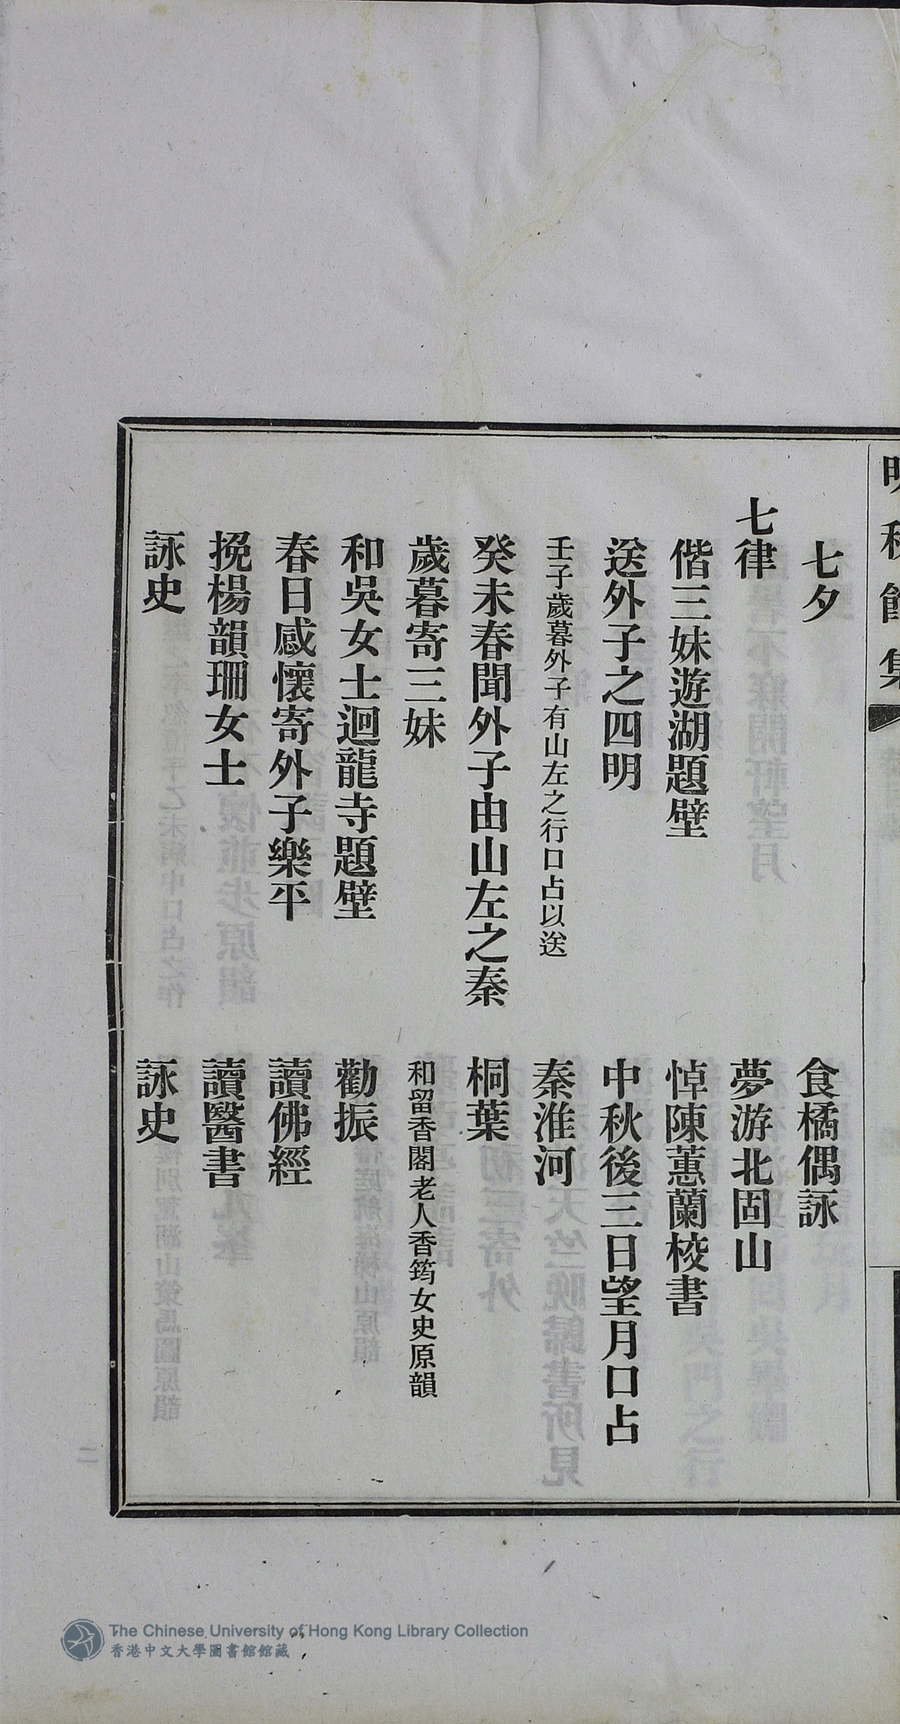 七夕
食橘偶詠
七律
夢游北固山
偕三妹遊湖題壁
悼陳蕙蘭校書
送外子之四明
中秋後三日望月口占
壬子歲暮外子有山左之行口占以送
秦淮河
癸未春聞外子由山左之秦
桐葉
歲暮寄三妹
和留香閣老人香筠女史原韻
和吳女士迴龍寺題壁
勸振
春日感懷寄外子樂平
讀佛經
挽楊韻珊女士
讀醫書
詠史
詠史
The Chinese University of Hong Kong Library Collection
香港中文大學圖書館館藏